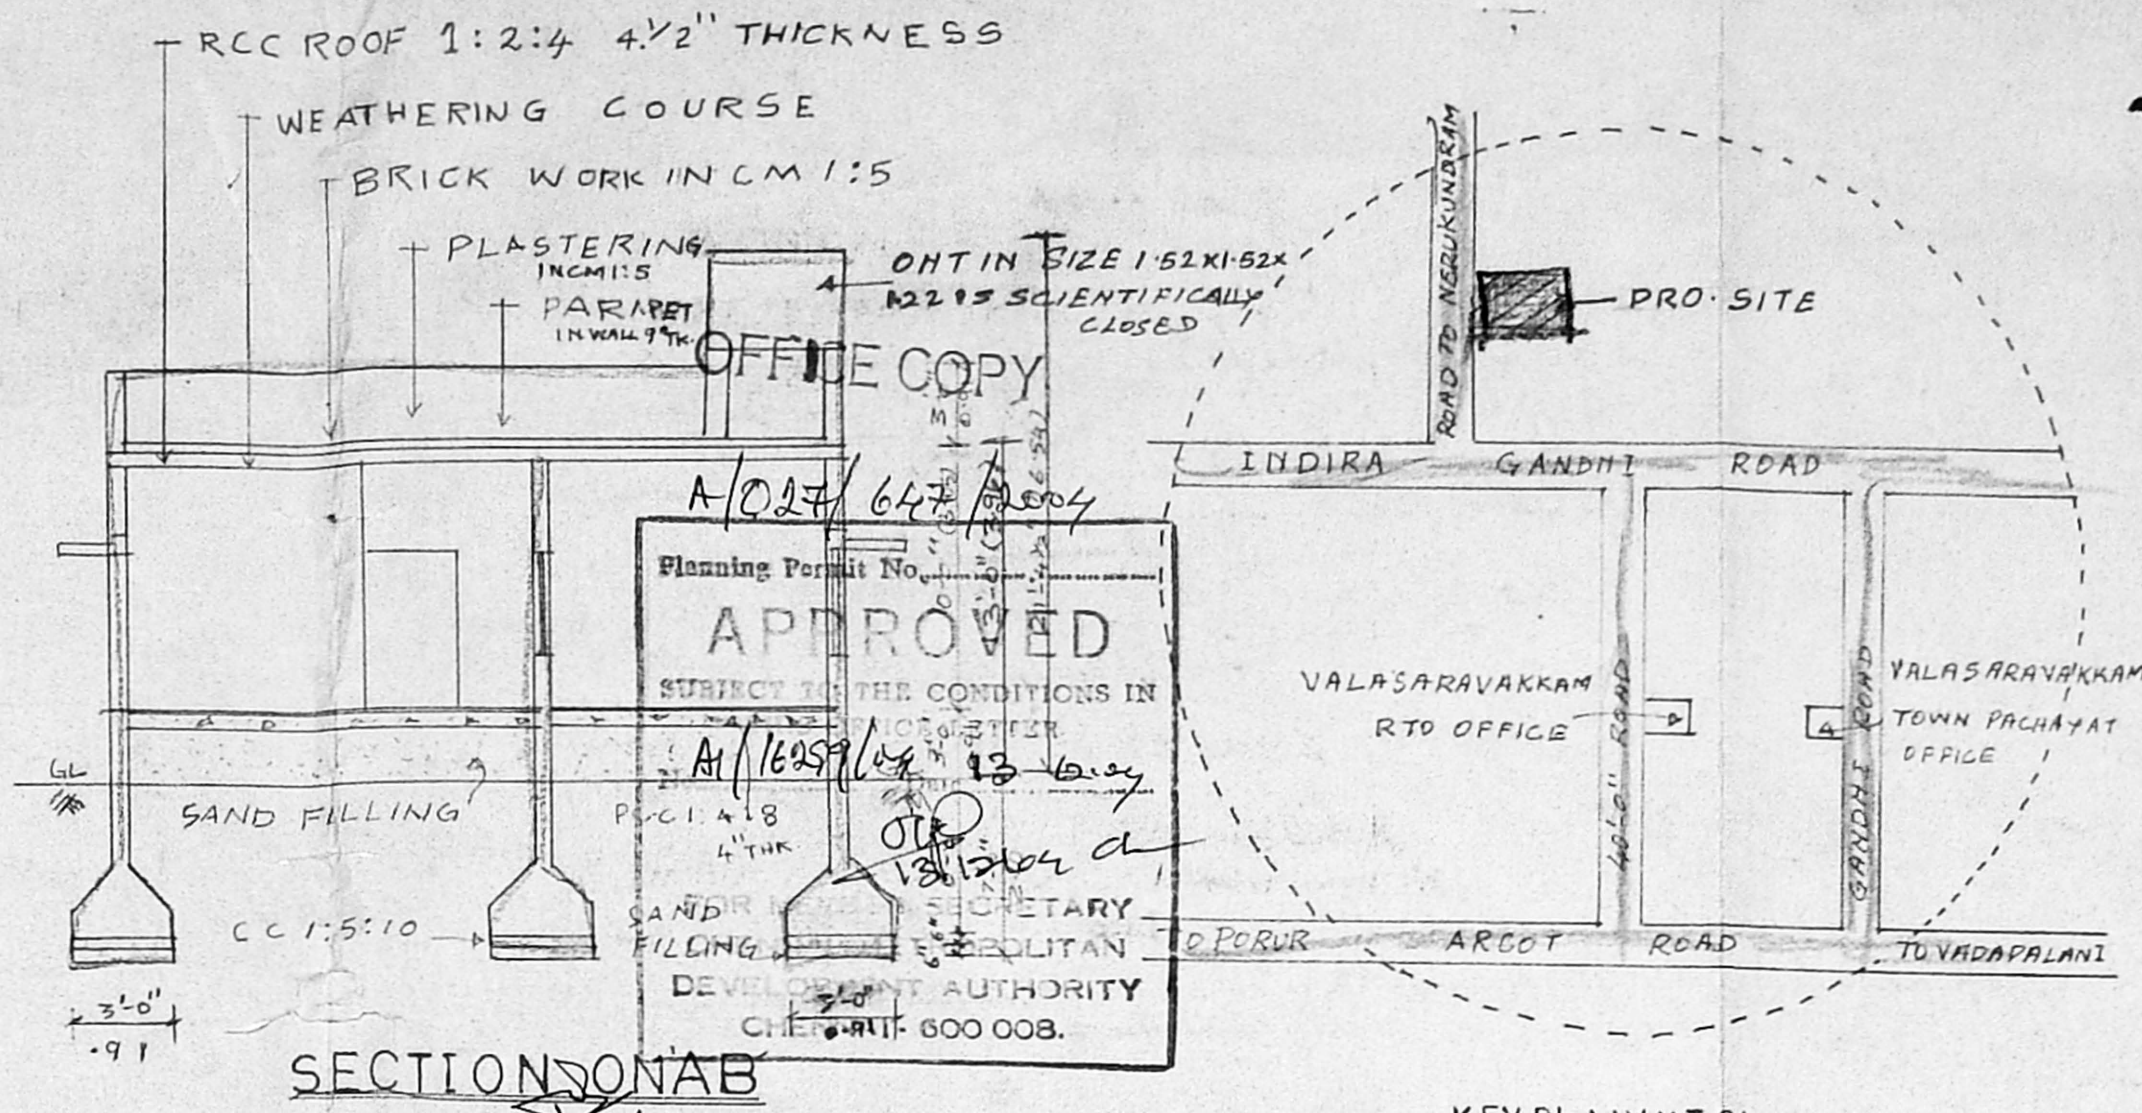 RCC ROOF 1:2:4 4.½" THICKNESS
WEATHERING COURSE
BRICK WORK IN CM 1:5
PLASTERING
IN CM 1:5
PARAPET
IN WALL 9" TK.
OHT IN SIZE 1.52X1.52X
SCIENTIFICALLY
CLOSED
OFFICE COPY
A/027/647/2004
Planning Permit No.
APPROVED
SUBJECT TO THE CONDITIONS IN
OFFICE LETTER
13-12-04
13/12/04
FOR MEMBER SECRETARY
METROPOLITAN
DEVELOPMENT AUTHORITY
CHENNAI- 600 008.
13'-0"
GL
SAND FILLING
P.C.C 1:4:8
4" THK.
CC 1:5:10
SAND
FILLING
3'-0"
.91
3'-0"
0.91
SECTION ON AB
ROAD TO NERUKUNDRAM
PRO. SITE
INDIRA GANDHI ROAD
VALASARAVAKKAM
RTO OFFICE
40'-0" ROAD
GANDHI ROAD
VALASARAVAKKAM
TOWN PACHAYAT
OFFICE
TO PORUR
ARCOT ROAD
TO VADAPALANI